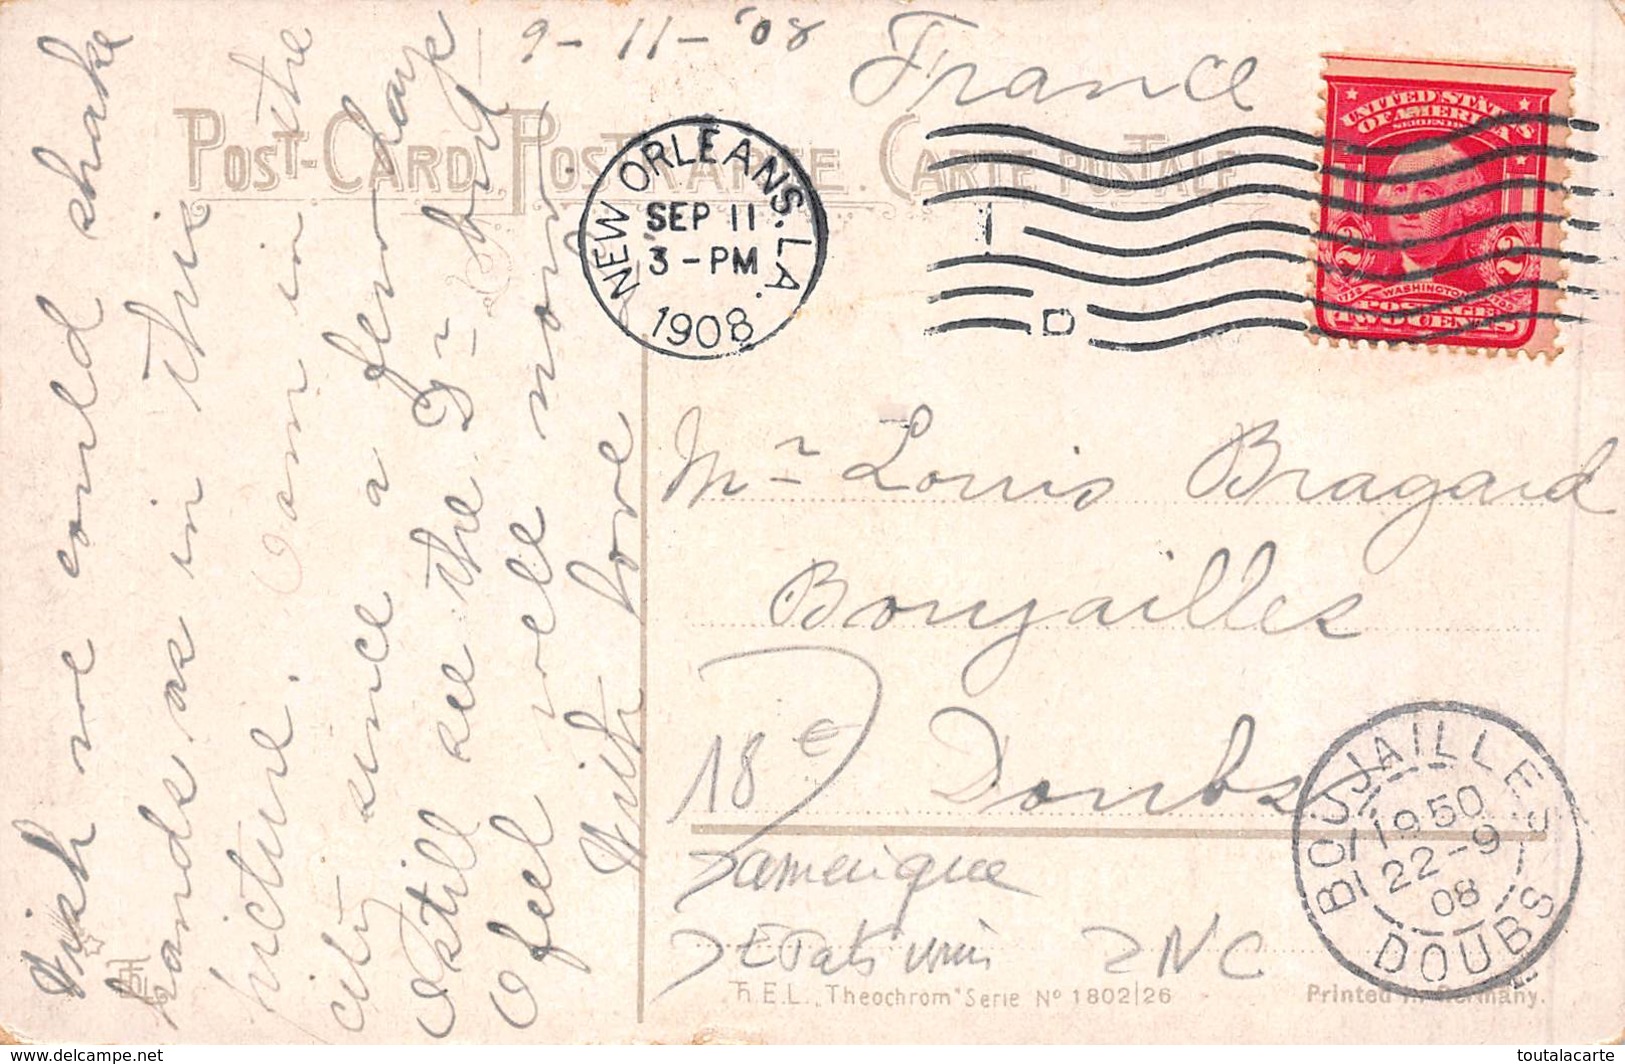 9-11-'08
France
POST-CARD. POSTKARTE. CARTE POSTALE
NEW ORLEANS, LA.
SEP 11
3-PM
1908
D
UNITED STATES
OF AMERICA
SERIES 1902
2 2
1732 WASHINGTON 1799
POSTAGE
TWO CENTS
Wish we could shake
hands as in this
picture. I am in the
city since a few days
I still see the Dr. but
I feel well now.
With love
Mr Louis Bragard
Boujailles
Doubs
18 €
amerique
Etats unis 2NC
BOUJAILLES
19 50
22-9
08
DOUBS
H.E.L. „Theochrom" Serie Nº 1802/26
Printed in Germany.
www.delcampe.net
toutalacarte